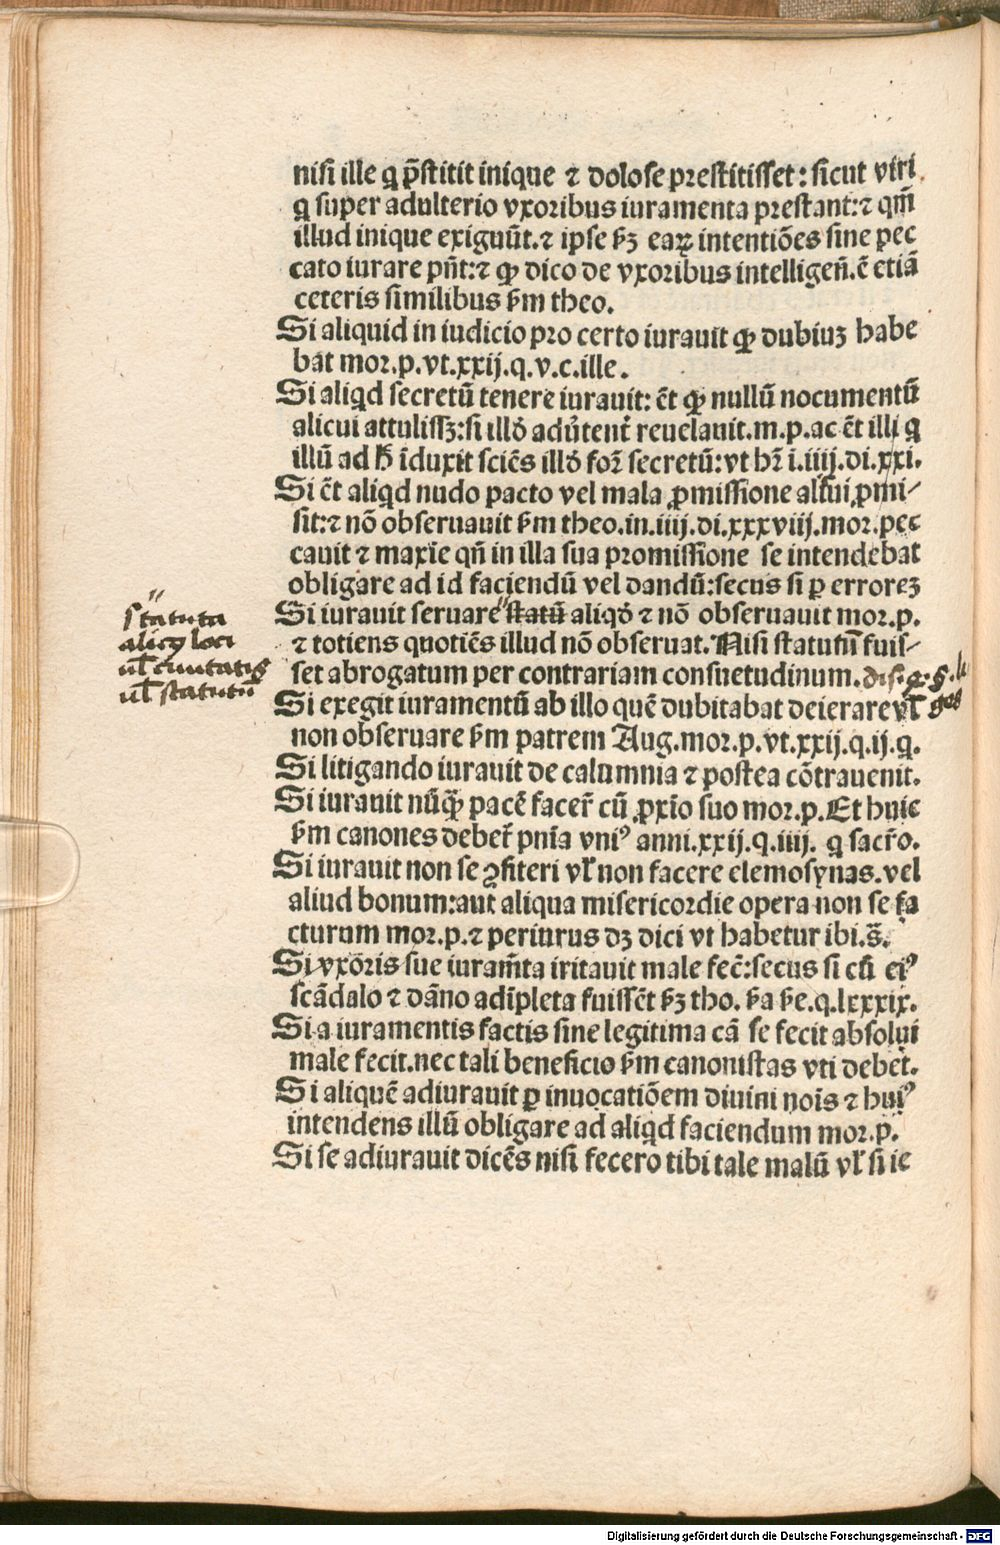 nisi ille q p̄stitit inique ⁊ dolose prestitisset: sicut viri
q super adulterio vxoribus iuramenta prestant:⁊ qm̄
illud inique exigūt.⁊ ipse ẜꝫ eaꝝ intentiōes sine pec
cato iurare pn̄t:⁊ ꝙ dico de vxoribus intelligen̄.ē etiā
ceteris similibus ẜm theo.
Si aliquid in iudicio pro certo iurauit ꝙ dubiuꝫ habe
bat mor.p.vt.xxij.q.v.c.ille.
Si aliqd secretū tenere iurauit: ēt ꝙ nullū nocumentū
alicui attulissꝫ:si illo᷒ adu᷒tent᷒ reuelauit.m.p.ac ēt illi q
illū ad h̄ īduxit sciēs illo᷒ for̄ secretū:vt hr̄ i.iiij.di.xxi.
Si ēt aliqd nudo pacto vel mala ꝓmissione alicui ꝓmi⸗
sit:⁊ nō obseruauit ẜm theo.in.iiij.di.xxxviij.mor.pec
cauit ⁊ maxīe qn̄ in illa sua promissione se intendebat
obligare ad id faciendū vel dandū:secus si ꝑ erroreꝫ
Si iurauit seruare statū aliqo᷒ ⁊ nō obseruauit mor.p.
⁊ totiens quotiēs illud nō obseruat. Nisi statutū fuis⸗
set abrogatum per contrariam consuetudinum. dis. q. §. le
ges
statuta
alicꝰ loci
ul̄ ciuitatis
ul̄ statutū
Si exegit iuramentū ab illo quē dubitabat deierare vl̄
non obseruare ẜm patrem Aug.mor.p.vt.xxij.q.ij.q.
Si litigando iurauit de calumnia ⁊ postea cōtrauenit.
Si iurauit nūꝙ̄ pacē facer̄ cū ꝓxīo suo mor.p.Et huic
ẜm canones deber̄ pn̄ia vniꝰ anni.xxij.q.iiij. q sacr̄o.
Si iurauit non se ꝯfiteri vl̓ non facere elemosynas.vel
aliud bonum:aut aliqua misericordie opera non se fa
cturum mor.p.⁊ periurus dꝫ dici vt habetur ibi.s̄.
Si vxōris sue iuram̄ta iritauit male fec̄:secus si cū eiꝰ
scādalo ⁊ dāno adīpleta fuissēt ẜꝫ tho. ẜa ẜe.q.lxxxix.
Si a iuramentis factis sine legitima cā se fecit absolui
male fecit.nec tali beneficio ẜm canonistas vti debet.
Si aliquē adiurauit ꝑ inuocatiōem diuini nois̄ ⁊ huiꝰ
intendens illū obligare ad aliqd faciendum mor.p.
Si se adiurauit dicēs nisi fecero tibi tale malū vl̓ si ie
Digitalisierung gefördert durch die Deutsche Forschungsgemeinschaft - DFG